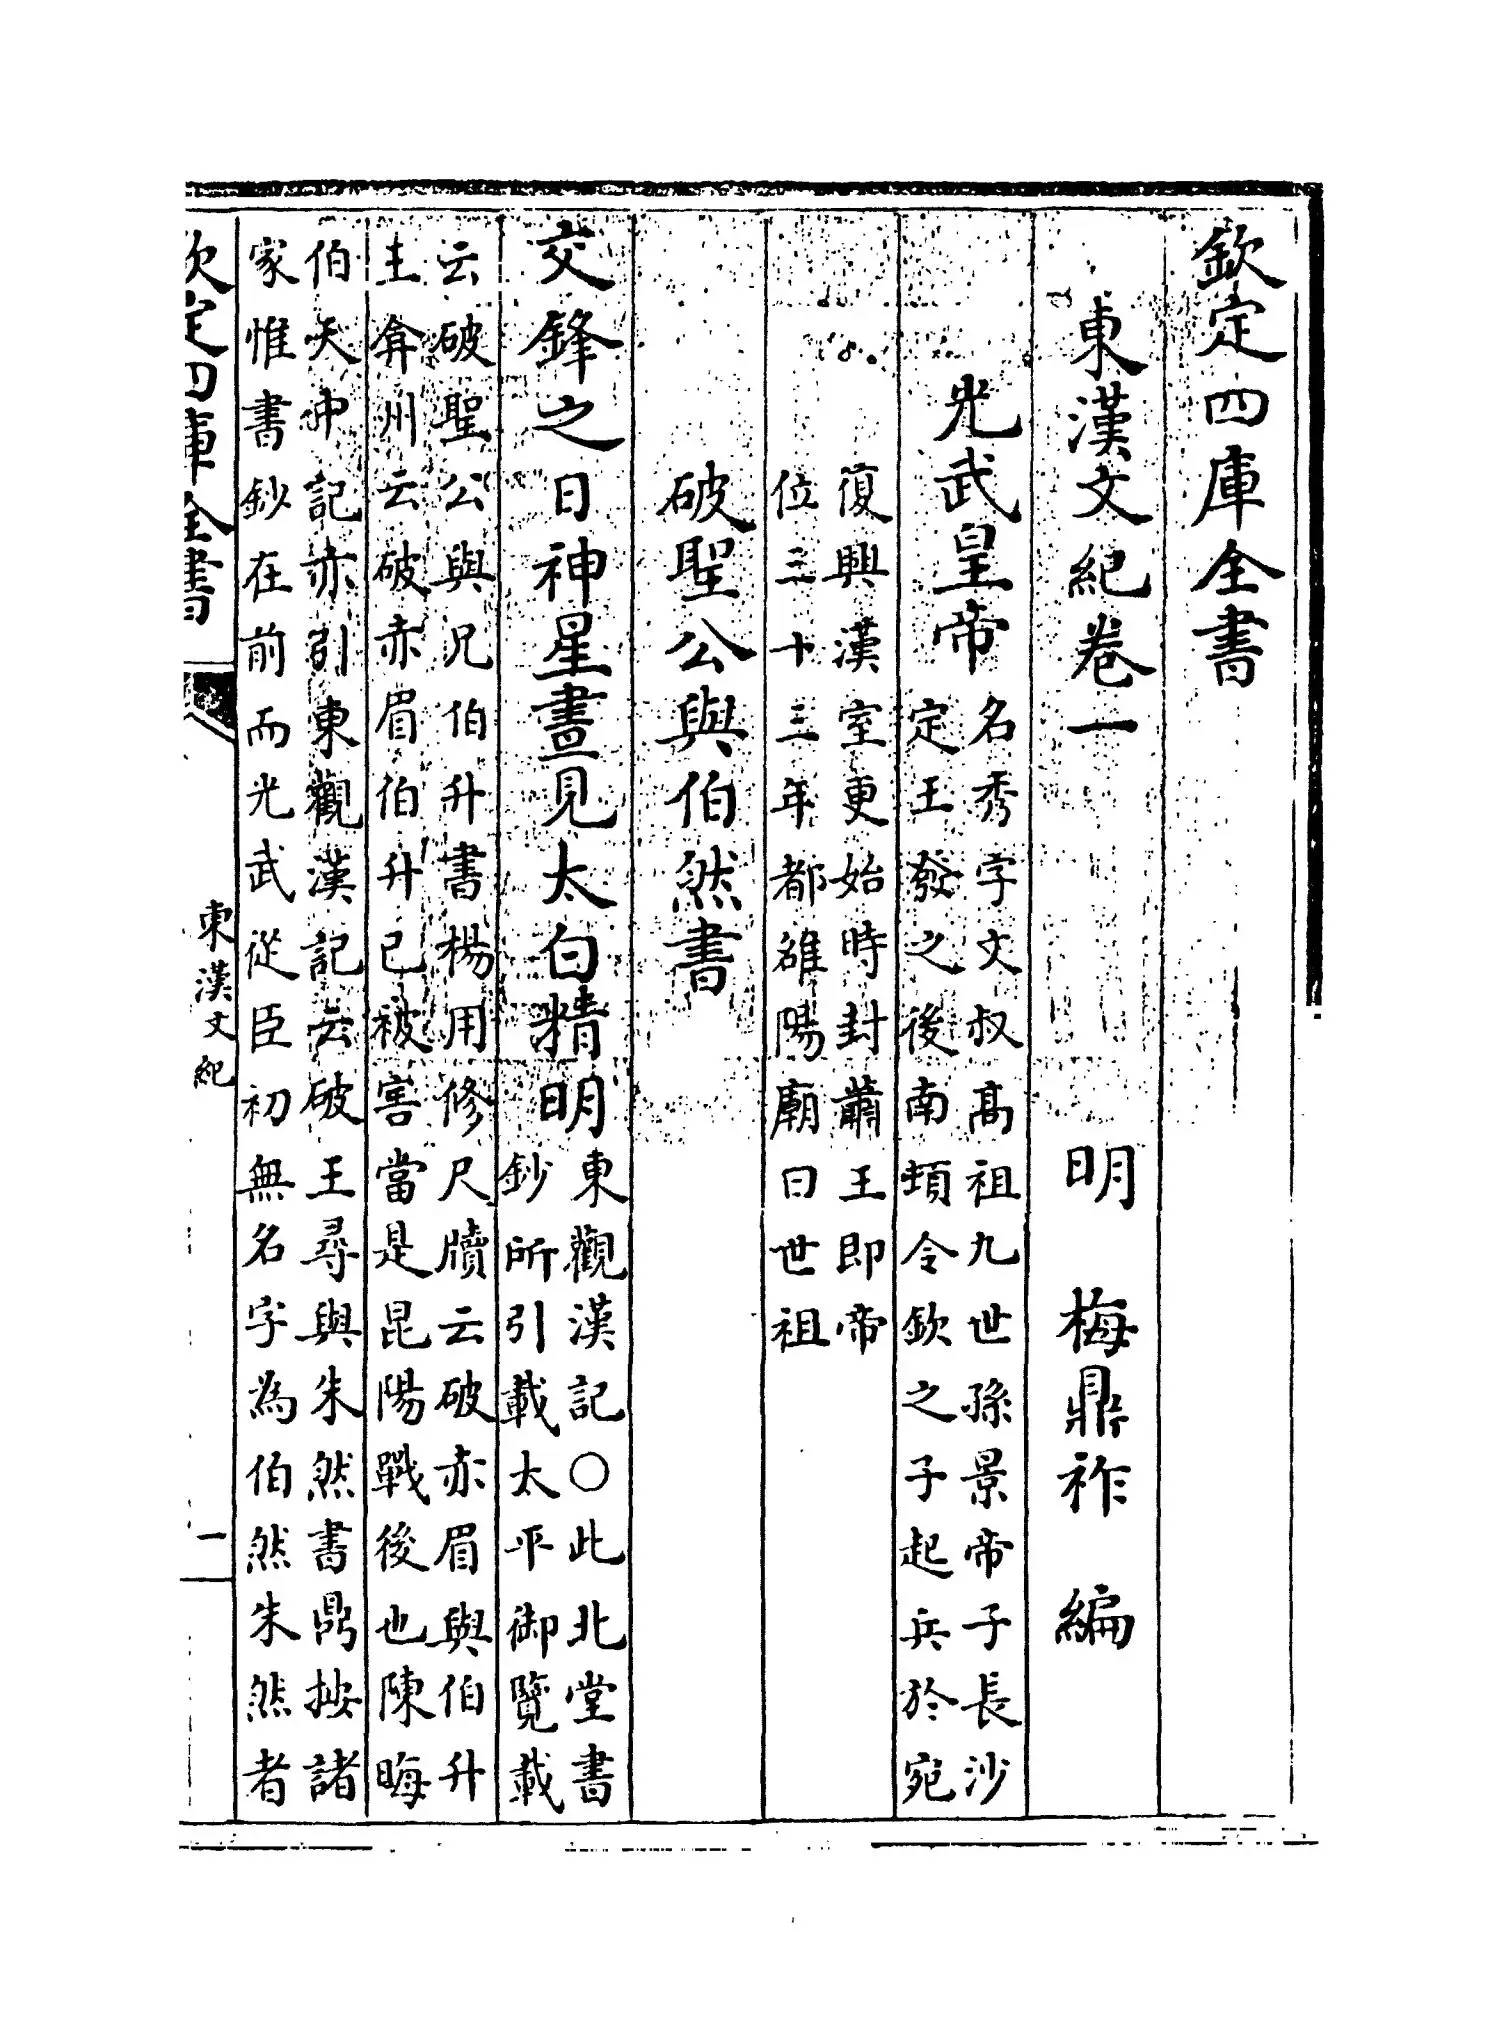 欽定四庫全書
東漢文紀卷一　明　梅鼎祚　編
光武皇帝
名秀字文叔髙祖九世孫景帝子長沙
定王發之後南頓令欽之子起兵於宛
復興漢室更始時封蕭王即帝
位三十三年都雒陽廟曰世祖
破聖公與伯然書
交鋒之日神星晝見太白精明
東觀漢記○此北堂書
鈔所引載太平御覽載
云破聖公與兄伯升書楊用修尺牘云破赤眉與伯升
主弇州云破赤眉伯升已被害當是昆陽戰後也陳晦
伯天中記亦引東觀漢記云破王尋與朱然書鼎按諸
家惟書鈔在前而光武從臣初無名字為伯然朱然者
欽定四庫全書
東漢文紀
一